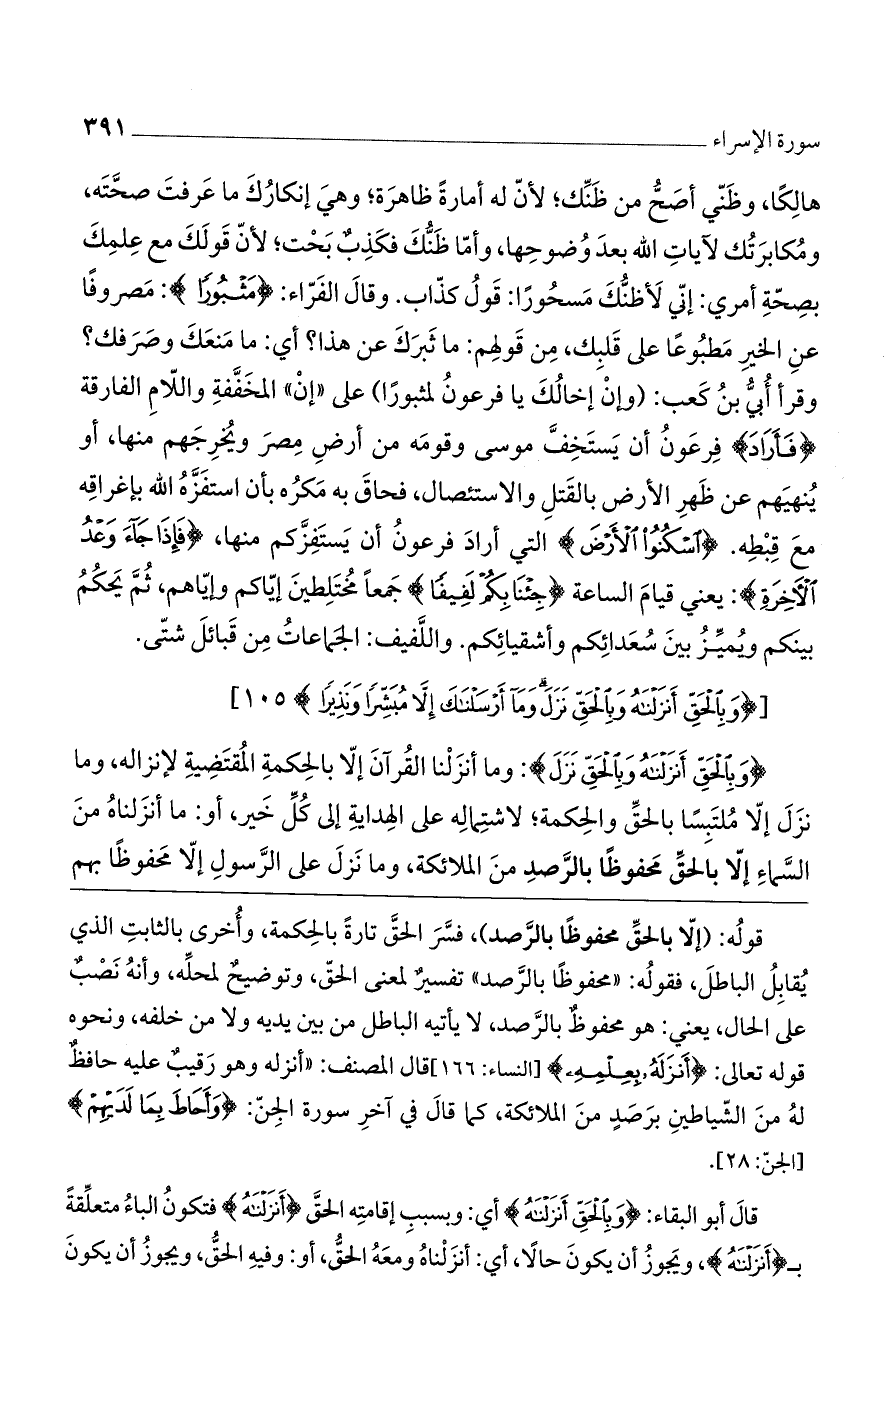 سورة الإسراء ٣٩١
هالِكًا، وظَنّي أصَحُّ من ظَنِّك؛ لأنّ له أمارةً ظاهرَة؛ وهيَ إنكارُكَ ما عَرفتَ صحَّتَه،
ومُكابرَتُك لآياتِ الله بعدَ وُضوحِها، وأمّا ظَنُّكَ فكَذِبٌ بَحْت؛ لأنّ قَولَكَ مع عِلمِكَ
بصِحّةِ أمري: إنّي لَأظنُّكَ مَسحُورًا: قَولُ كذّاب. وقالَ الفَرّاء: ﴿مَثْبُورًا﴾: مَصروفًا
عنِ الخيرِ مَطبُوعًا على قَلبِك، مِن قَولهِم: ما ثَبرَكَ عن هذا؟ أي: ما مَنعَكَ وصَرَفك؟
وقرأ أُبيُّ بنُ كَعب: (وإنْ إخالُكَ يا فرعونُ لمثبورًا) على «إنْ» المخَفَّفةِ واللّامِ الفارقة
﴿فَأَرَادَ﴾ فِرعَونُ أن يَستَخِفَّ موسى وقومَه من أرضِ مِصرَ ويُخرِجَهم منها، أو
يُنهيَهم عن ظَهرِ الأرض بالقَتلِ والاستئصال، فحاقَ به مَكرُه بأن استفَزَّهُ الله بإغراقِه
معَ قِبْطِه. ﴿ٱسْكُنُوا۟ ٱلْأَرْضَ﴾ التي أرادَ فرعونُ أن يَستَفِزَّكم منها، ﴿فَإِذَا جَآءَ وَعْدُ
ٱلْآخِرَةِ﴾: يعني قيامَ الساعة ﴿جِئْنَا بِكُمْ لَفِيفًا﴾ جَمعاً مُختَلِطينَ إيّاكم وإيّاهم، ثُمَّ يَحكُمُ
بينَكم ويُميِّزُ بينَ سُعَدائِكم وأشقيائِكم. واللَّفيف: الجَماعاتُ مِن قَبائلَ شتّى.
[﴿وَبِٱلْحَقِّ أَنزَلْنَـٰهُ وَبِٱلْحَقِّ نَزَلَ ۗ وَمَآ أَرْسَلْنَـٰكَ إِلَّا مُبَشِّرًا وَنَذِيرًا﴾ ١٠٥]
﴿وَبِٱلْحَقِّ أَنزَلْنَـٰهُ وَبِٱلْحَقِّ نَزَلَ﴾: وما أنزَلْنا القُرآنَ إلّا بالحِكمةِ المُقتَضِيةِ لإنزاله، وما
نزَلَ إلّا مُلتَبِسًا بالحقِّ والحِكمة؛ لاشتِمالِه على الهِدايةِ إلى كُلِّ خَير، أو: ما أنزَلناهُ منَ
السَّماءِ إلّا بالحقِّ مَحفوظًا بالرَّصدِ منَ الملائكة، وما نَزلَ على الرَّسولِ إلّا مَحفوظًا بهم
قولُه: (إلّا بالحقِّ محفوظًا بالرَّصد)، فسَّرَ الحقَّ تارةً بالحِكمة، وأُخرى بالثابتِ الذي
يُقابِلُ الباطلَ، فقولُه: «محفوظًا بالرَّصد» تفسيرٌ لمعنى الحقّ، وتوضيحٌ لمحلِّه، وأنهُ نَصْبٌ
على الحال، يعني: هو محفوظٌ بالرَّصد، لا يأتيه الباطل من بين يديه ولا من خلفه، ونحوه
قوله تعالى: ﴿أَنزَلَهُۥ بِعِلْمِهِۦ﴾ [النساء: ١٦٦]قال المصنف: «أنزله وهو رَقيبٌ عليه حافظٌ
لهُ منَ الشّياطينِ برَصَدٍ منَ الملائكة، كما قالَ في آخرِ سورة الجِنّ: ﴿وَأَحَاطَ بِمَا لَدَيْهِمْ﴾
[الجنّ: ٢٨].
قالَ أبو البقاء: ﴿وَبِٱلْحَقِّ أَنزَلْنَـٰهُ﴾ أي: وبسببِ إقامتِه الحقَّ ﴿أَنزَلْنَـٰهُ﴾ فتكونُ الباءُ متعلِّقةً
بـ﴿أَنزَلْنَـٰهُ﴾، ويَجوزُ أن يكونَ حالًا، أي: أنزَلْناهُ ومعَهُ الحقُّ، أو: وفيهِ الحقُّ، ويجوزُ أن يكونَ